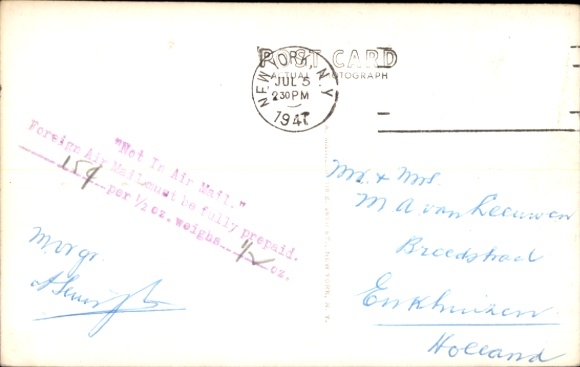 POST CARD
ACTUAL PHOTOGRAPH
NEW YORK, N.Y.
JUL 5
230PM
1947
"Not In Air Mail."
Foreign Air Mail must be fully prepaid.
15¢ per 1/2 oz. weighs 1/2 oz.
M. vr gr.
Mr. & Mrs.
M A. van Leeuwen
Breedstraat
Enkhuizen
Holland